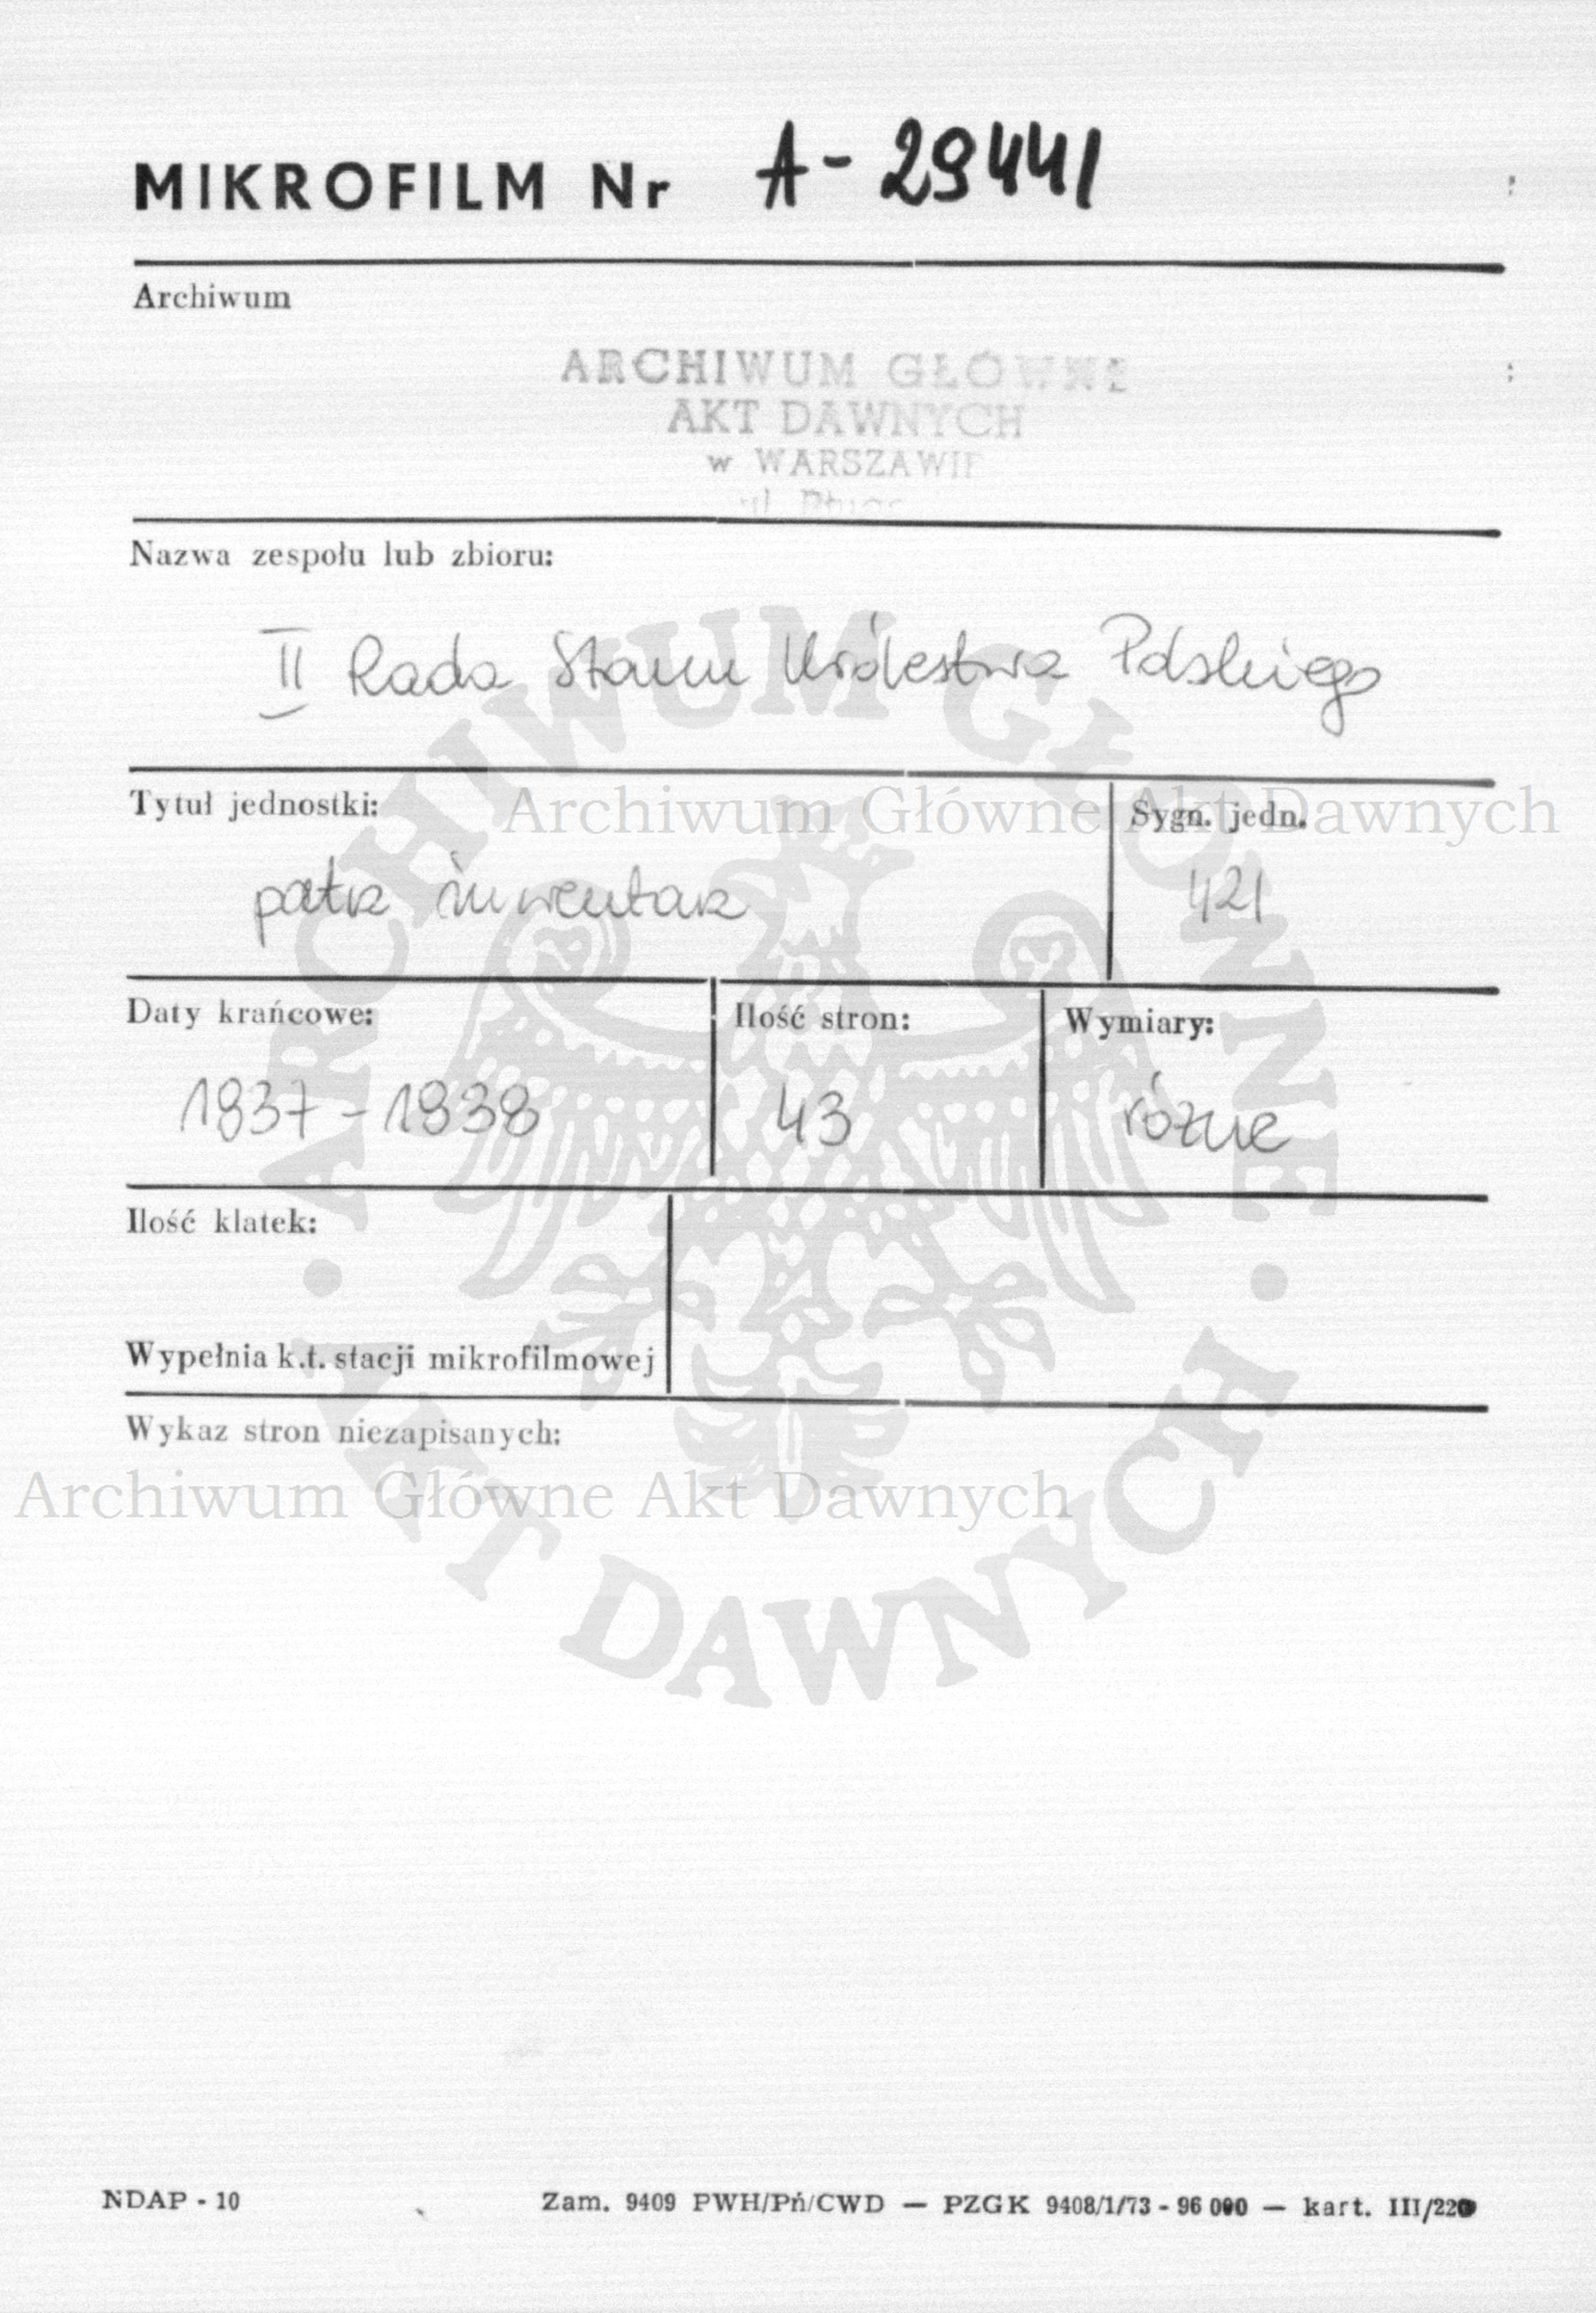 MIKROFILM Nr A-29441
Archiwum
ARCHIWUM GŁÓWNE
AKT DAWNYCH
w WARSZAWIE
Nazwa zespołu lub zbioru:
II Rada Stanu Królestwa Polskiego
Tytuł jednostki:
Sygn. jedn.
Archiwum Główne Akt Dawnych
patrz inwentarz
421
Daty krańcowe:
Ilość stron:
Wymiary:
1837-1838
43
różne
Ilość klatek:
Wypełnia k.t. stacji mikrofilmowej
Wykaz stron niezapisanych:
Archiwum Główne Akt Dawnych
ARCHIWUM GŁÓWNE
AKT DAWNYCH
NDAP - 10
Zam. 9409 PWH/Pń/CWD — PZGK 9408/1/73 - 96 000 — kart. III/220